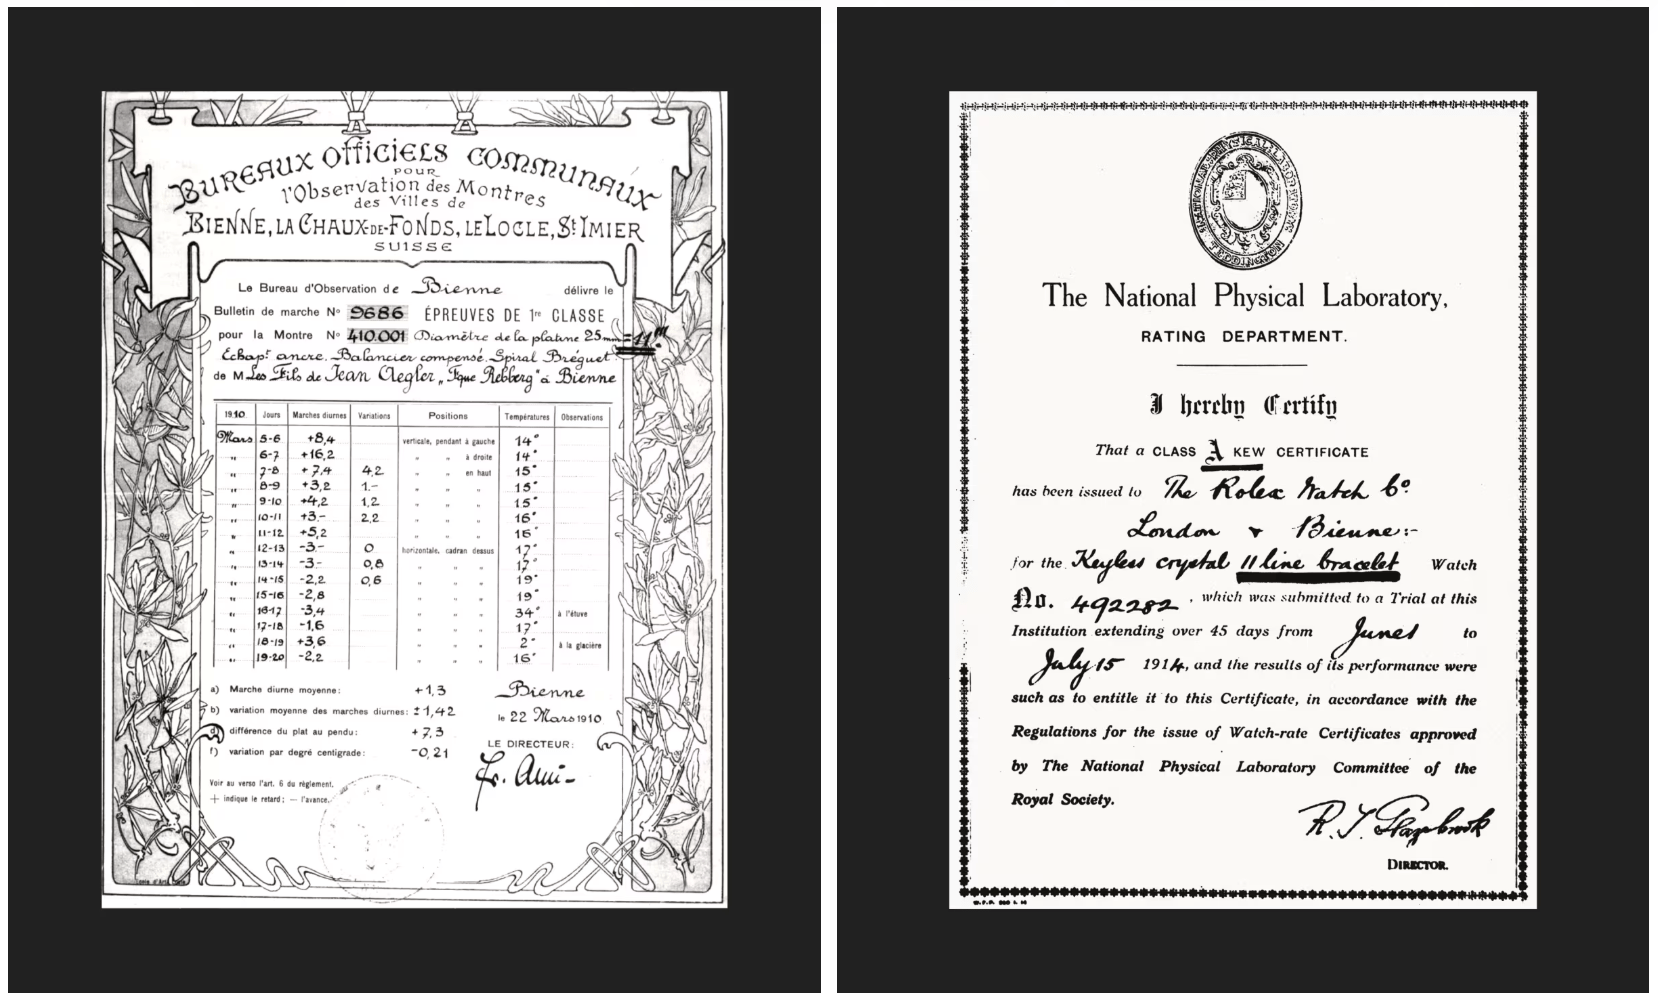 BUREAUX OFFICIELS COMMUNAUX
POUR
l'Observation des Montres
des Villes de
BIENNE, LA CHAUX-DE-FONDS, LE LOCLE, St IMIER
SUISSE
Le Bureau d'Observation de Bienne délivre le
Bulletin de marche No 9686 ÉPREUVES DE 1re CLASSE
pour la Montre No 410.001 Diamètre de la platine 25 mm = 11'''
Echapt ancre. Balancier compensé. Spiral Bréguet.
de M Les Fils de Jean Aegler, „Fque Rebberg" à Bienne
1910. Jours Marches diurnes Variations Positions Températures Observations
Mars 5-6 +8,4 verticale, pendant à gauche 14°
„ 6-7 +16,2 „ „ à droite 14°
„ 7-8 +7,4 4,2 „ „ en haut 15°
„ 8-9 +3,2 1.- „ „ „ 15°
„ 9-10 +4,2 1,2 „ „ „ 15°
„ 10-11 +3.- 2,2 „ „ „ 16°
„ 11-12 +5,2 „ „ „ 16°
„ 12-13 -3.- 0 horizontale, cadran dessus 17°
„ 13-14 -3.- 0,8 „ „ „ 17°
„ 14-15 -2,2 0,6 „ „ „ 19°
„ 15-16 -2,8 „ „ „ 19°
„ 16-17 -3,4 „ „ „ 34° à l'étuve
„ 17-18 -1,6 „ „ „ 17°
„ 18-19 +3,6 „ „ „ 2° à la glacière
„ 19-20 -2,2 „ „ „ 16°
a) Marche diurne moyenne: +1,3
b) variation moyenne des marches diurnes: ±1,42
d) différence du plat au pendu: +7,3
f) variation par degré centigrade: -0,21
Bienne
le 22 Mars 1910
LE DIRECTEUR:
Voir au verso l'art. 6 du règlement.
+ indique le retard; — l'avance.
The National Physical Laboratory,
RATING DEPARTMENT.
I hereby Certify
That a CLASS A KEW CERTIFICATE
has been issued to The Rolex Watch Co.
London & Bienne:-
for the Keyless crystal 11 line bracelet Watch
No. 492282, which was submitted to a Trial at this
Institution extending over 45 days from June 1 to
July 15 1914, and the results of its performance were
such as to entitle it to this Certificate, in accordance with the
Regulations for the issue of Watch-rate Certificates approved
by The National Physical Laboratory Committee of the
Royal Society.
R. T. Glazebrook
DIRECTOR.